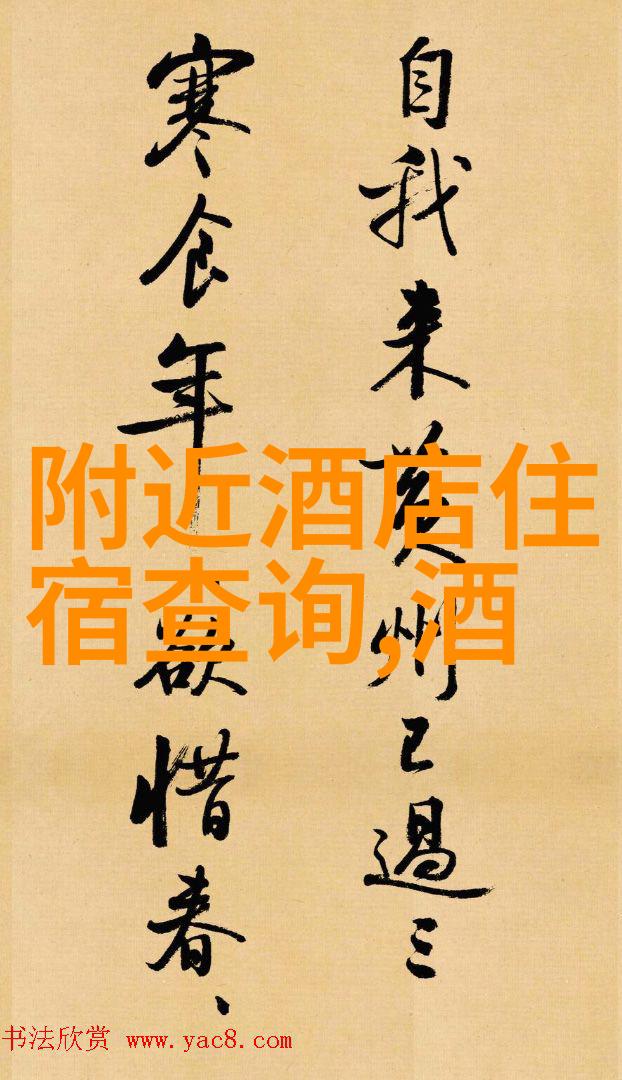 自我来黄州已過三
寒食年年欲惜春、
附近酒店住
宿查询,酒
书法欣赏 www.yac8.com